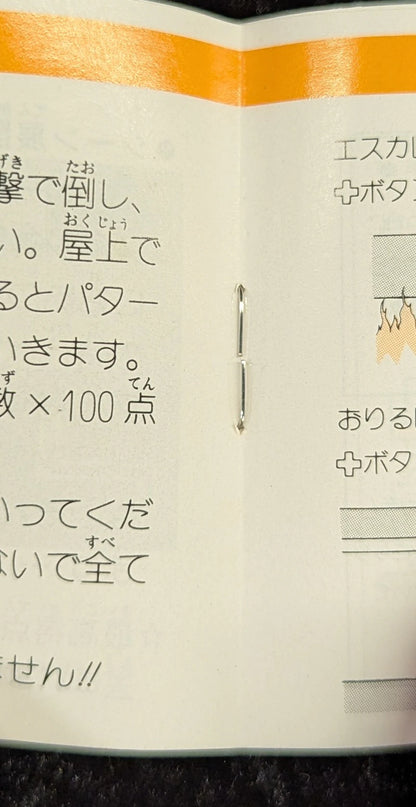 撃で倒し、
い。屋上で
るとパター
いきます。
数×100点
いってくだ
ないで全て
ません!!
エスカレ
ボタン
おりる
ボタ